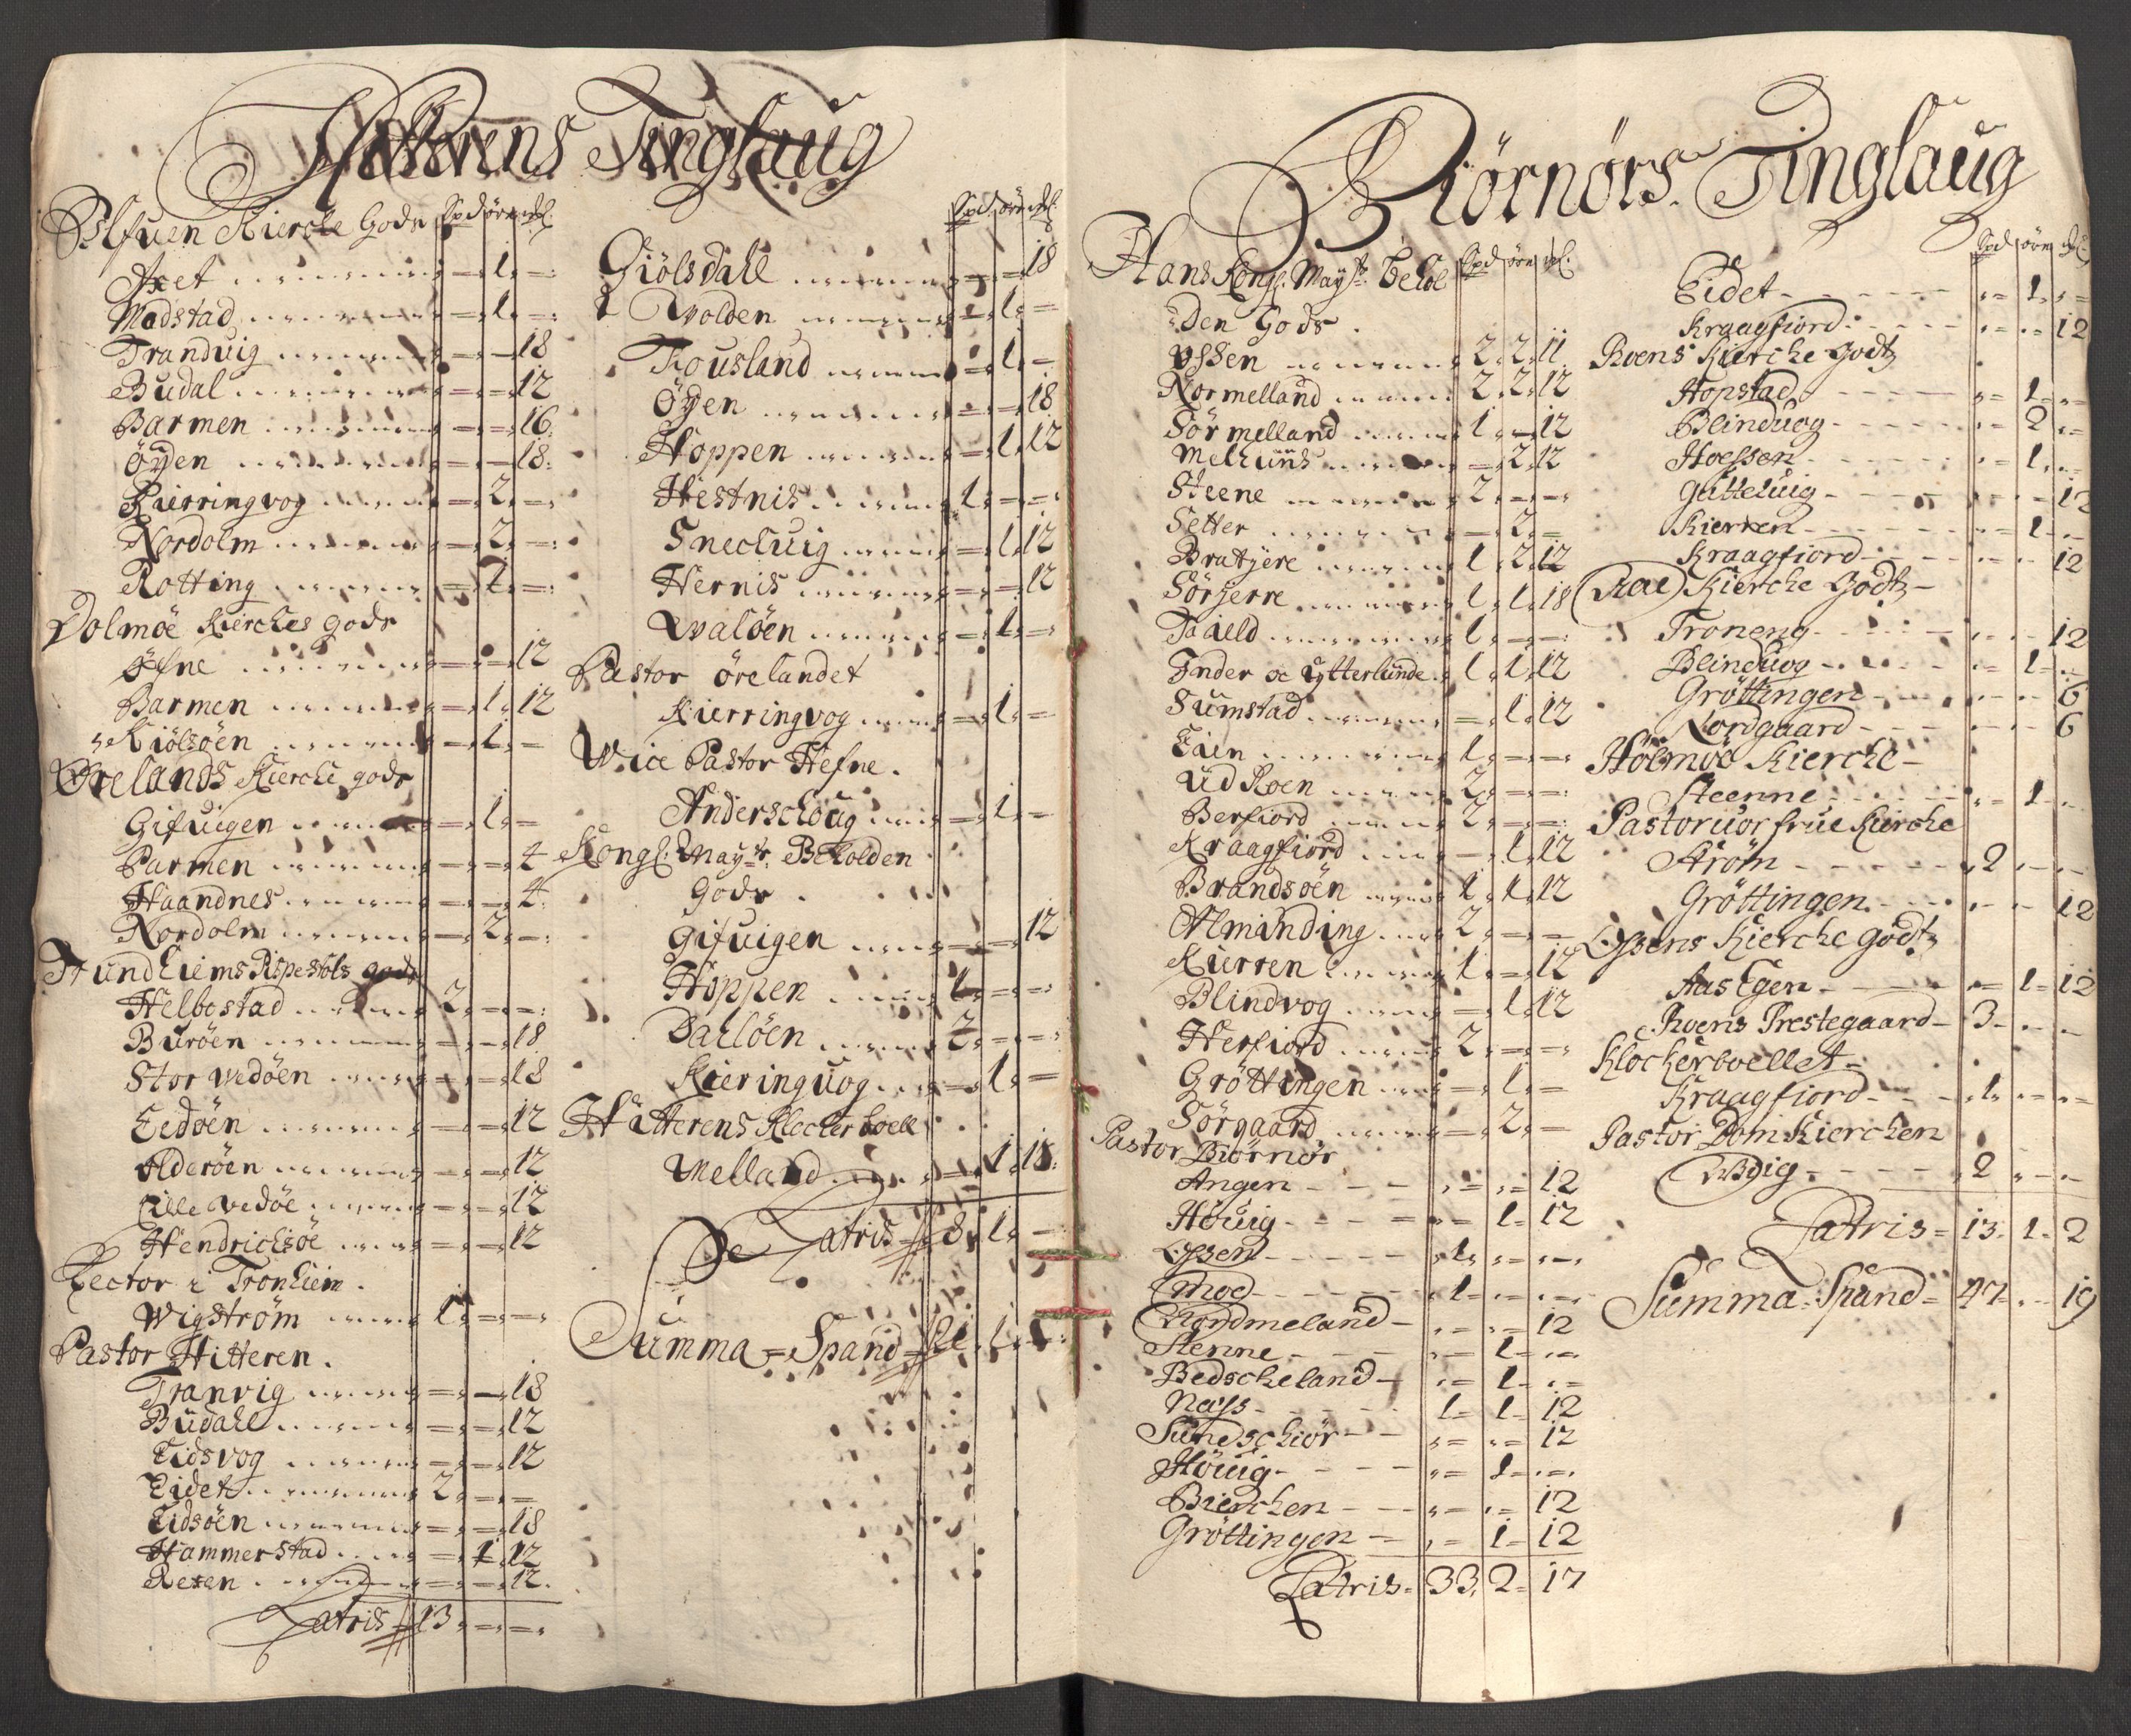 Hitterens Tinglaug
Kierche Gods Spd øre mkl.
Axet - 1 -
Madstad - 1 -
Tranduig - - 18
Budal - - 12
Barmen - - 16
Öyen - - 18
Kierringvog - 2 -
Nordolm - 2 -
Rotting - 2 -
Dolmöe Kierches gods
Öfne - - 12
Barmen - 1 12
Kiölsöen - 1 -
Ørelands Kierche gods
Gifuigen - 1 -
Parmen - - 4
Haandnes - - 4
Nordolm - 2 -
Helbostad 2 - -
Buröen - - 18
Stor Wedöen - - 18
Eedöen - - 12
Alderöen - - 12
Lille Vedöe - - 12
Hendrichsöe - - 12
Lector i Tronhiem.
Wigström 1 - -
Pastor Hitteren.
Tranvig - - 18
Budahl - - 12
Eidsvog - - 12
Eidet 2 - -
Eidsöen - - 18
Hammerstad - 1 12
Rexen - - 12
Latris 13 - -
Spd øre mkl.
Giölsdahl - - 18
Wolden - 1 -
Rousland - 1 -
Öyen - - 18
Hoppen - 1 12
Hestnis 1 - -
Snecluig - 1 12
Hernis - - 12
Walöen - 1 -
Pastor örelandet
Kierringvog - 1 -
Wice Pastor Hefne.
Anderschoug - 1 -
Kongl: Mayts: Beholden
Gods
Gifuigen - - 12
Hoppen 1 - -
Dahlöen 2 - -
Kieringuog - 1 -
Hitterens Klocker boell
Melland - 1 18
Latris 8 1 -
Summa Spand 21 1 -
Biörnörs Tinglaug
Hans Kongl. Mayts: Behol Spd øre mkl.
den Gods
Ossen 2 2 11
Normelland 2 2 12
Sör melland 1 - 12
Melhuus - 2 12
Steene 2 - -
Setter - 2 -
Bratjere 1 2 12
Sörjerre 1 1 18
Taaeld 1 - -
Inder oc Ytterlunde 1 1 12
Sumstad - 1 12
Eien 1 - -
Ud Roen 2 - -
Berfiord 2 - -
Kraagfiord - 1 12
Brandsöen 1 1 12
Alminding 2 - -
Kierren 1 - 12
Blindvog - 1 12
Herfiord 2 - -
Gröttingen - 1 -
Sörgaard - 2 -
Pastor Biörnör
Angen - - 12
Höuig - 1 12
Ossen 1 - -
Moe 1 - -
Nordmeland - - 12
Stenne - 1 -
Bedscheland - 1 -
Næss 1 1 12
Sundschiör - - 12
Höuig - 1 -
Bierchen - - 12
Gröttingen - 1 12
Latris 33 2 17
Spd øre mkl.
Eidet - 1 -
Kraagfiord - - 12
Roens Kierche Godtz
Hopstad - 1 -
Blinduog - 2 -
Hoessen - 1 -
Gutteluig - - 12
Kierren - 1 -
Kraagfiord - - 12
Rae Kierche Godtz
Troneng - - 12
Blinduog - 1 -
Gröttingen - - 6
Nordgaard - - 6
Holmöe Kierche
Steenne - 1 -
Pastor uor frue Kierche
Ström 2 - -
Gröttingen - - 12
Ossens Kierche Godtz
Aas Egen - 1 12
Roens Prestegaard 3 - -
Klockerboellet
Kraagfiord 1 - -
Pastor Dom Kierchen
Wdig 2 - -
Latris 13 1 2
Summa Spand 47 - 19